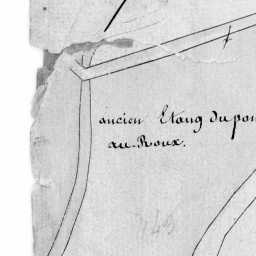 ancien Etang du pon
au Roux.